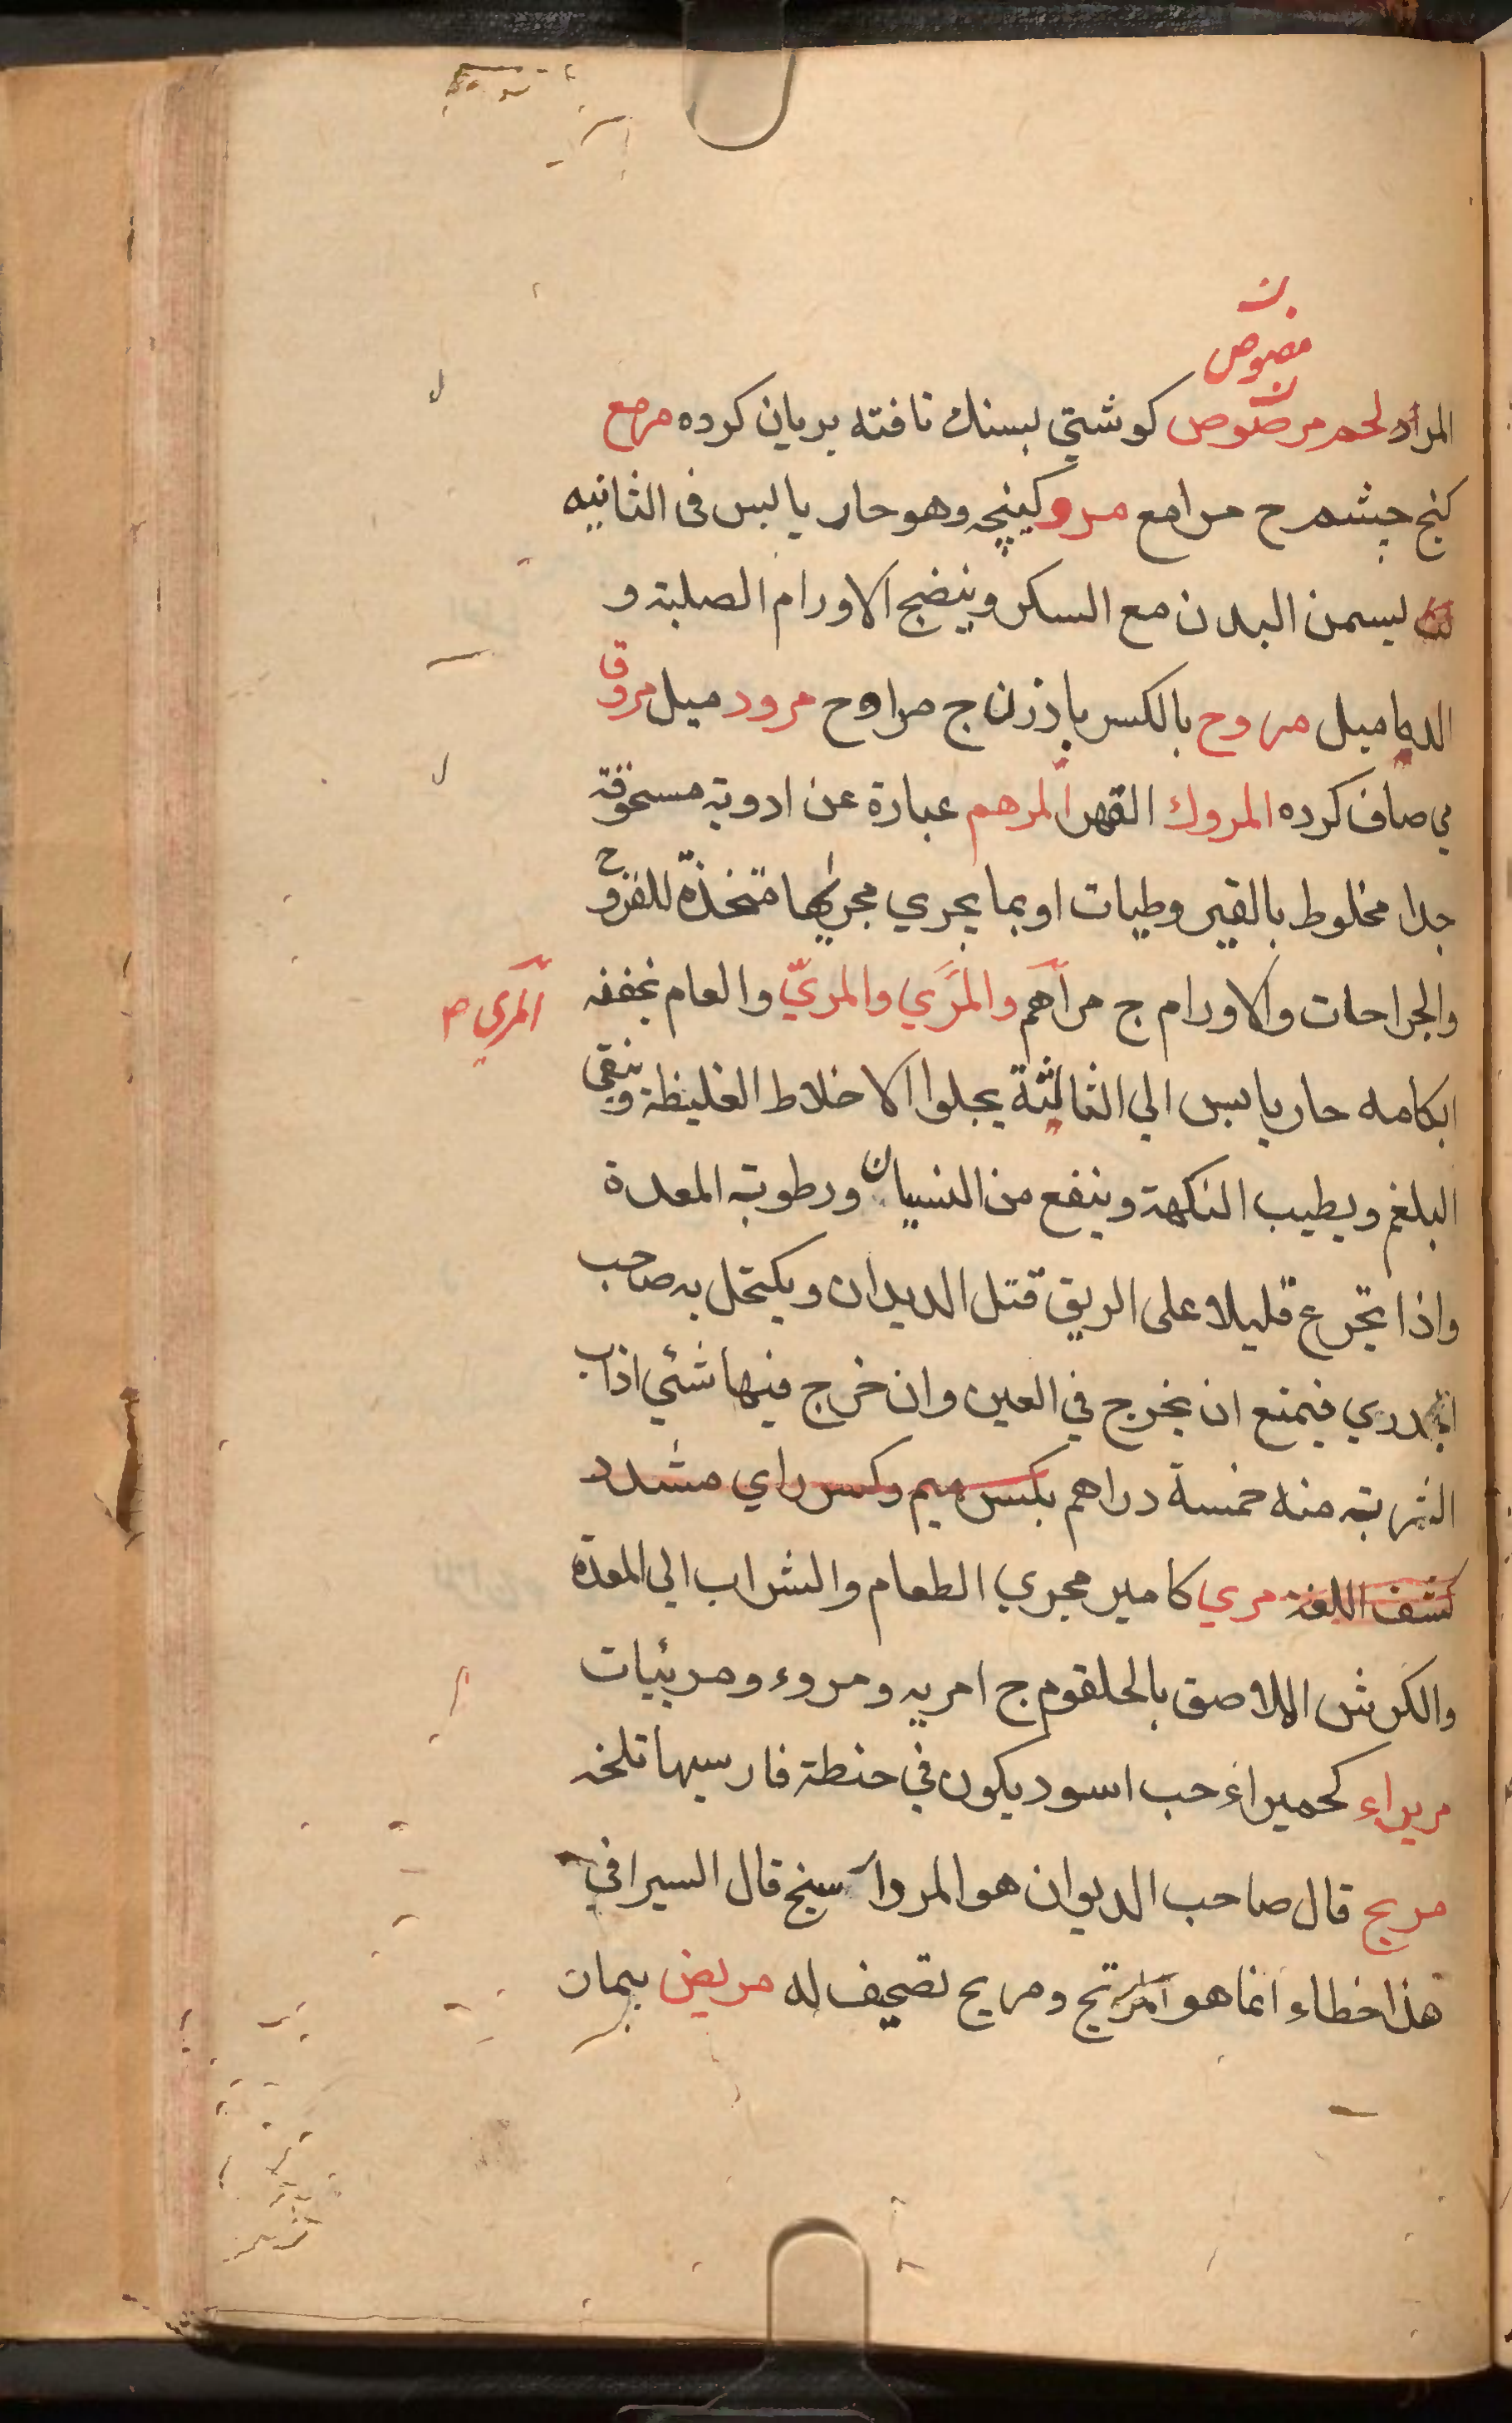 ن
مصوص
المراد لحم مرصوص كوشتي بسنك تافته بريان كرده مرمع
كنج چشم ج مرامع مرو كينچه وهو حار يابس فى الثانيه
يسمن البدن مع السكر وينضج الاورام الصلبة و
الدماميل مروح بالكسر بادزن ج مراوح مرود ميل مروق
مي صاف كرده المروك القهر المرهم عبارة عن ادوية مسحوقة
جدا مخلوط بالقيروطيات او بما يجري مجريها متخذة للقروح
والجراحات والاورام ج مراهم والمري والمريّ والعام يخففه
المري م
ابكامه حار يابس الي الثالثة يجلوا الاخلاط الغليظة وينقي
البلغم ويطيب النكهة وينفع من النسيان ورطوبة المعدة
واذا تجرع قليلا على الريق قتل الديدان ويكتحل به صاحب
الجدري فيمنع ان يخرج في العين وان خرج فيها شئي اذاب
الشربة منه خمسة دراهم بكسر ميم وكسر راي مشدد
كشف اللغة مري كامير مجري الطعام والشراب الي المعدة
والكرش اللاصق بالحلقوم ج امريه ومروء ومريئيات
مريراء كحميراء حب اسود يكون في حنطة فارسيها تلخه
مريح قال صاحب الديوان هو المرداسنج قال السيرافي
هذا خطاء انما هو المرتج ومريح تصحيف له مريض بيمار